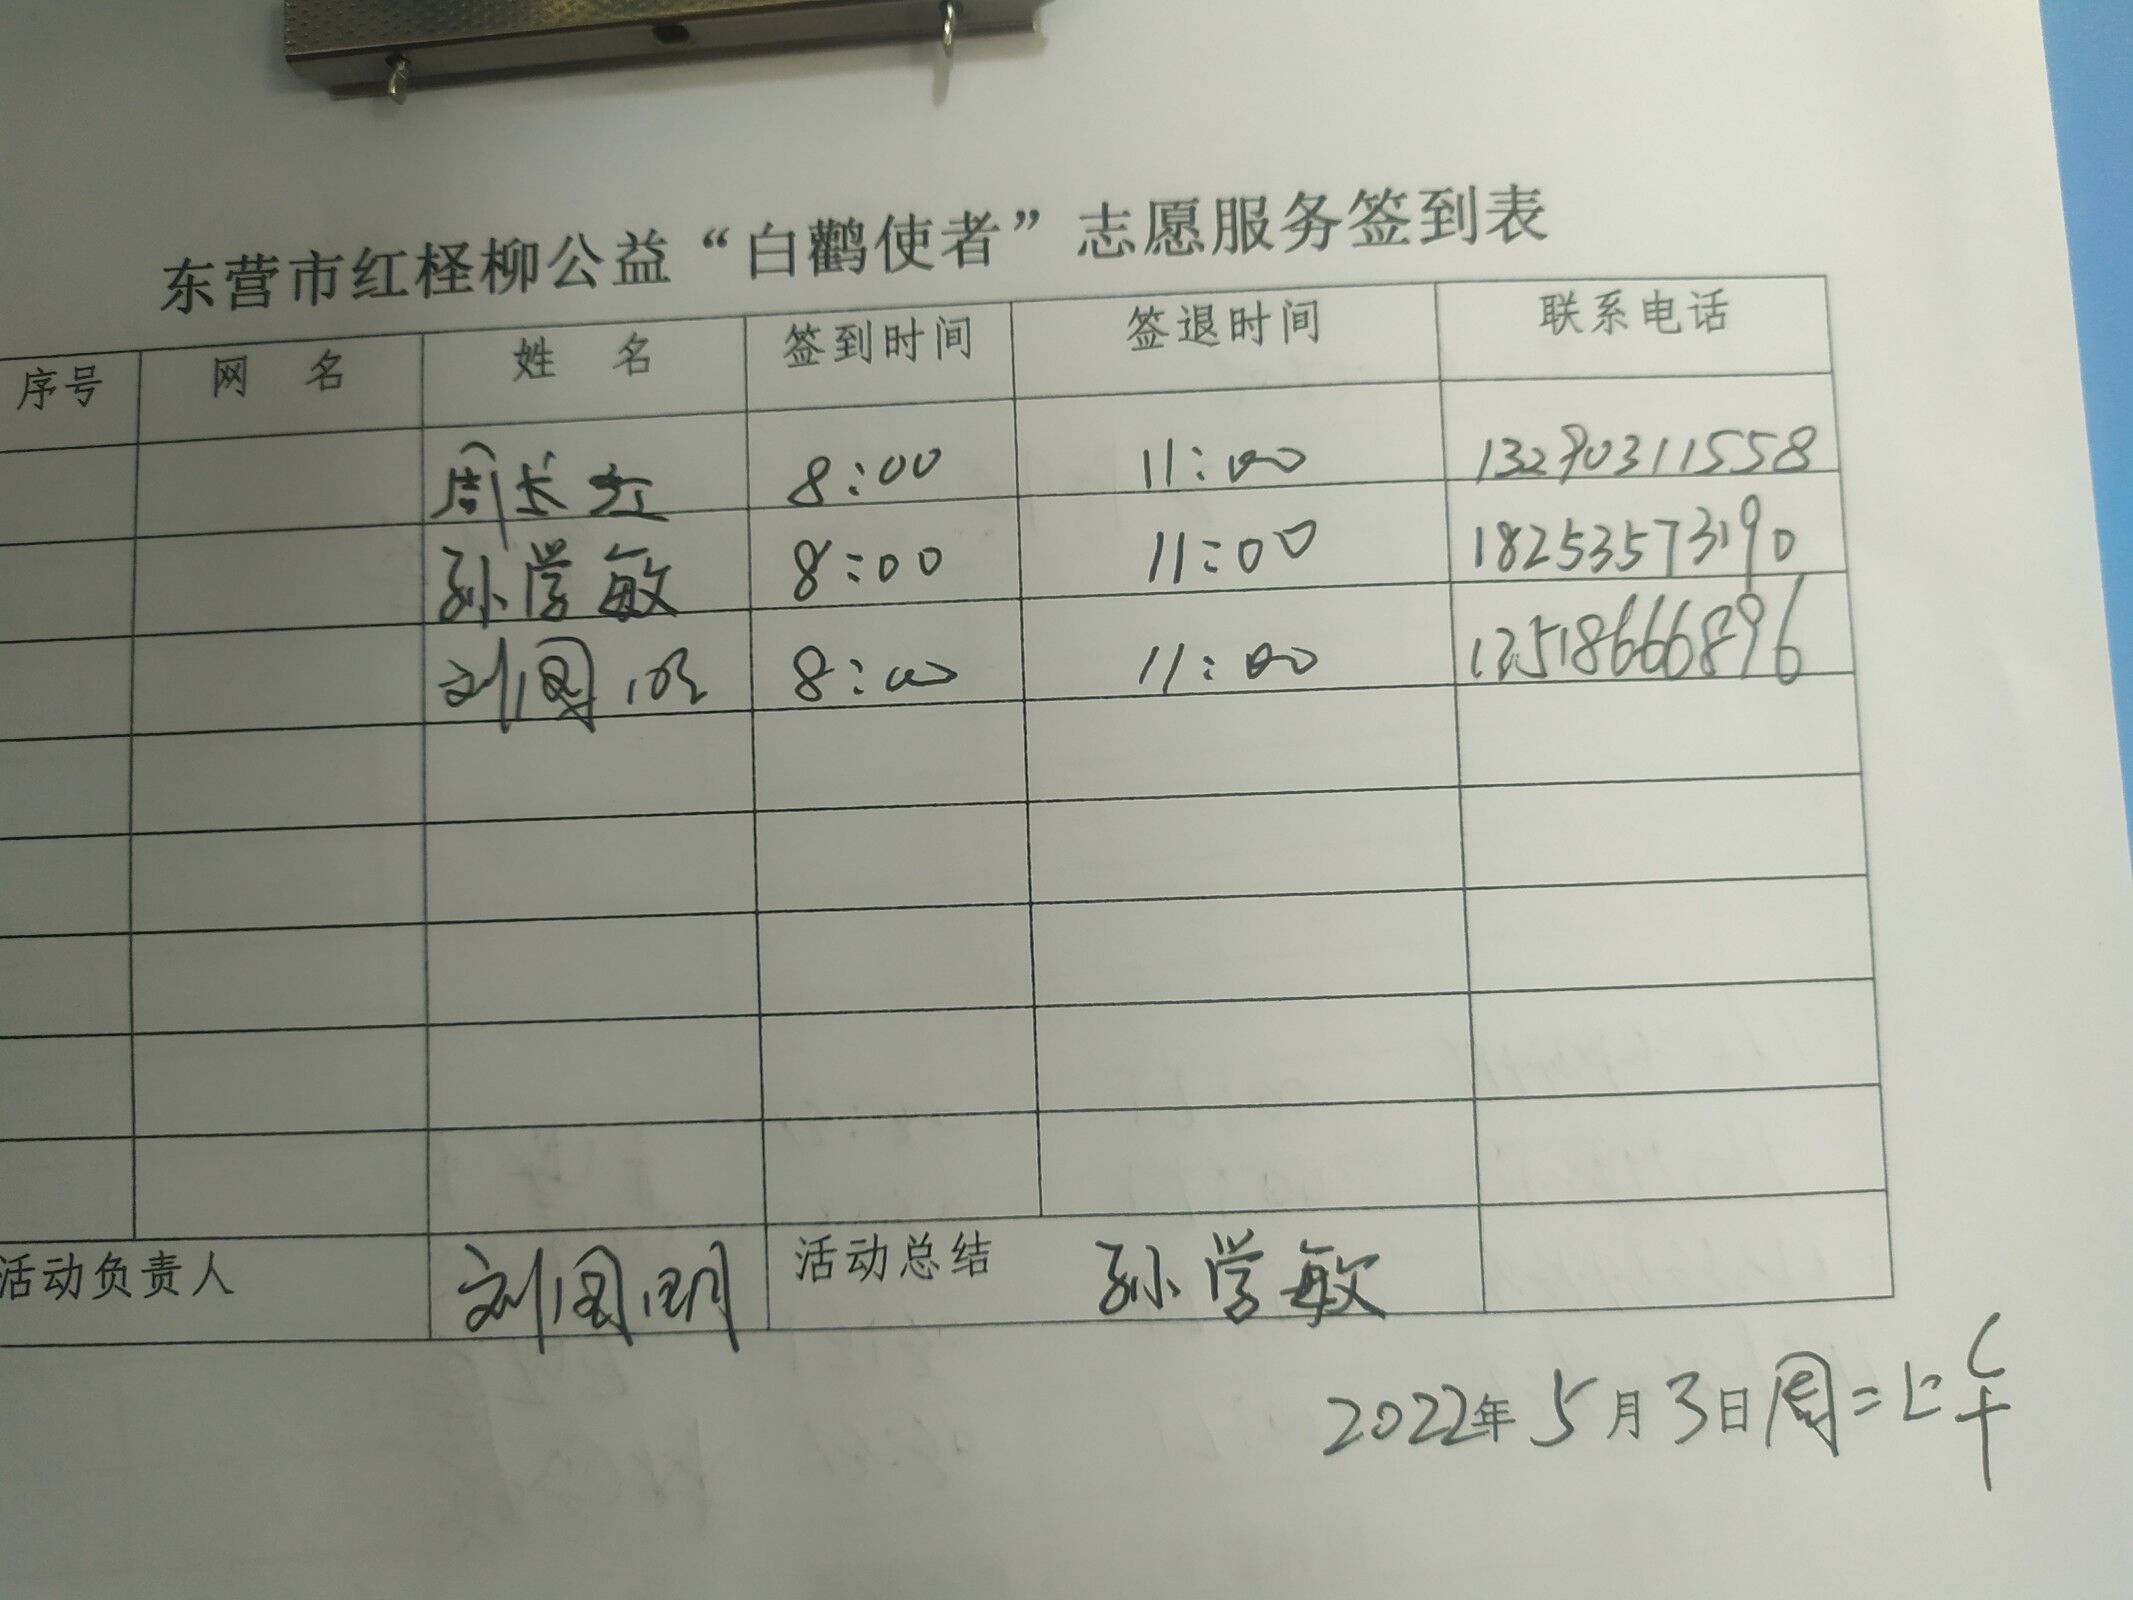 东营市红柽柳公益“白鹳使者”志愿服务签到表
序号 网 名 姓 名 签到时间 签退时间 联系电话
周长红 8:00 11:00 13290311558
孙学敏 8:00 11:00 18253573190
刘国明 8:00 11:00 18666896
活动负责人 刘国明 活动总结 孙学敏
2022年5月3日周二上午